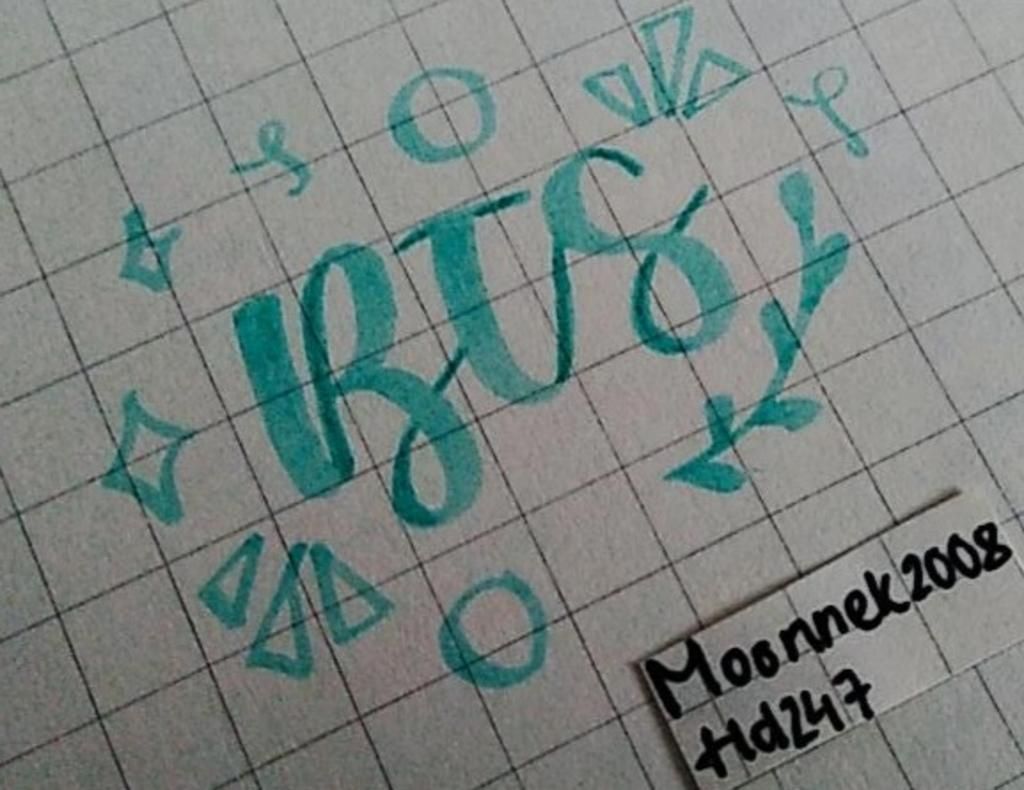 BTS
Moonnek2008
Hd247